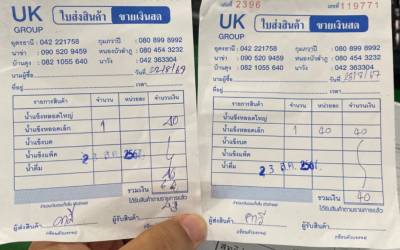 UK
GROUP
ใบส่งสินค้า
ขายเงินสด
อุดรธานี : 042 221758
กุมภวาปี : 080 899 8992
นาข่า : 090 520 9459
หนองบัวลำภู : 080 454 3232
บ้านดุง : 082 1055 640
นาวัว : 042 363304
นามผู้ซื้อ
วันที่
ที่อยู่
เวลา
รายการสินค้า
จำนวน
หน่วยละ
จำนวนเงิน
น้ำแข็งหลอดใหญ่
น้ำแข็งหลอดเล็ก 1
น้ำแข็งบด
น้ำแข็งแพ็ค
น้ำดื่ม
2 3 ส.ค. 256
รวมเงิน
ได้รับสินค้าตามรายการแล้ว
ผู้ส่งสินค้า
ผู้รับสินค้า
2396
เลขที่ 119771
UK
GROUP
ใบส่งสินค้า
ขายเงินสด
อุดรธานี : 042 221758
กุมภวาปี : 080 899 8992
นาข่า : 090 520 9459
หนองบัวลำภู : 080 454 3232
บ้านดุง : 082 1055 640
นาวัว : 042 363304
นามผู้ซื้อ
วันที่
ที่อยู่
เวลา
รายการสินค้า
จำนวน
หน่วยละ
จำนวนเงิน
น้ำแข็งหลอดใหญ่
น้ำแข็งหลอดเล็ก 1 40 40
น้ำแข็งบด
น้ำแข็งแพ็ค
น้ำดื่ม
2 3 ส.ค. 256
รวมเงิน 40
ได้รับสินค้าตามรายการแล้ว
ผู้ส่งสินค้า
ผู้รับสินค้า